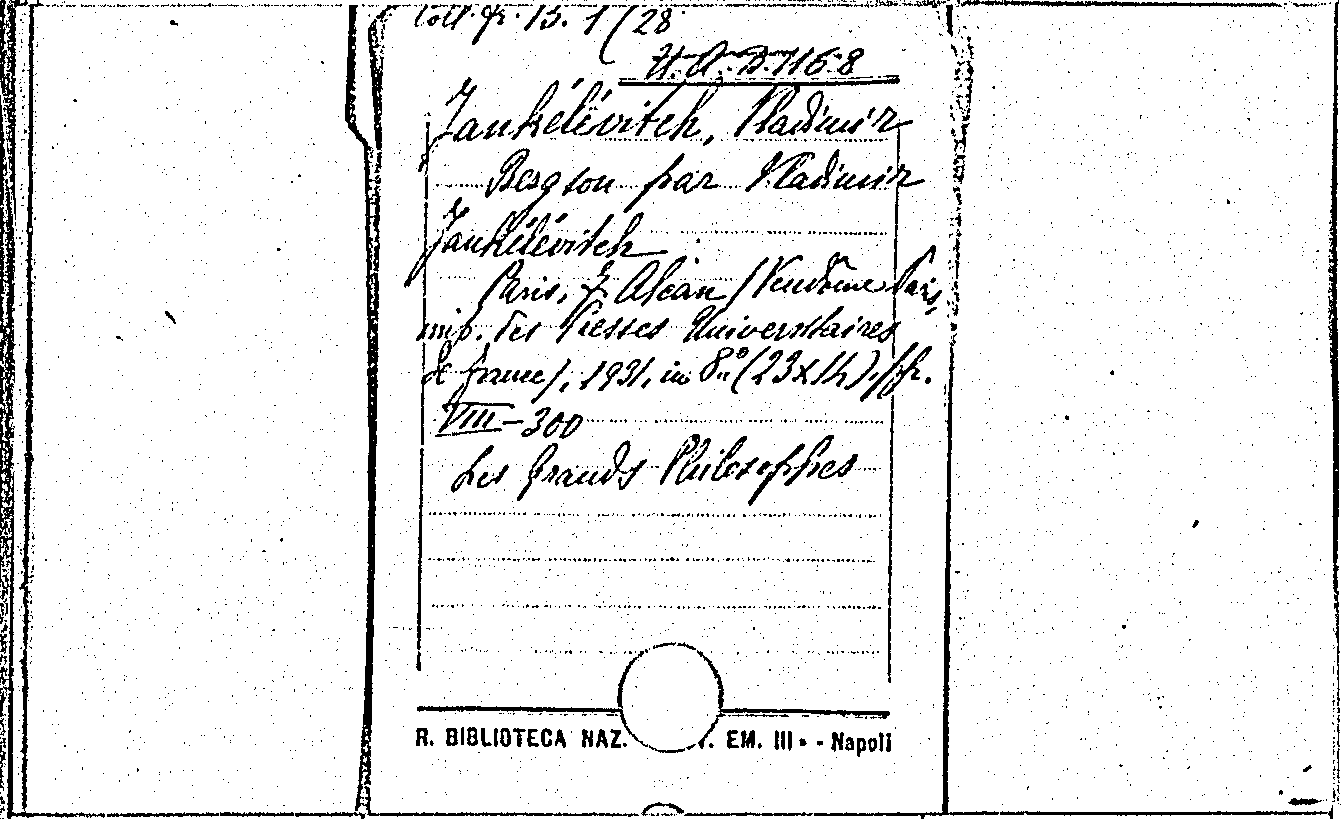 Coll. fr. B. 1 (28
H. A. D. 1168
Jankélévitch, Vladimir
Bergson par Vladimir
Jankélévitch
Paris, F. Alcan (Vendôme Paris,
imp. des Presses Universitaires
de France), 1931, in 8° (23x14), pp.
VIII-300
Les Grands Philosophes
R. BIBLIOTECA NAZ. EM. III - Napoli